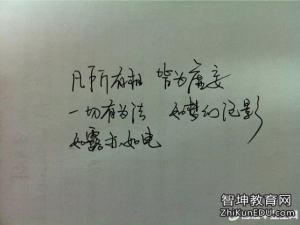 凡所有相 皆为虚妄
一切有为法 如梦幻泡影
如露亦如电
智坤教育网
ZhiKunEDU.com